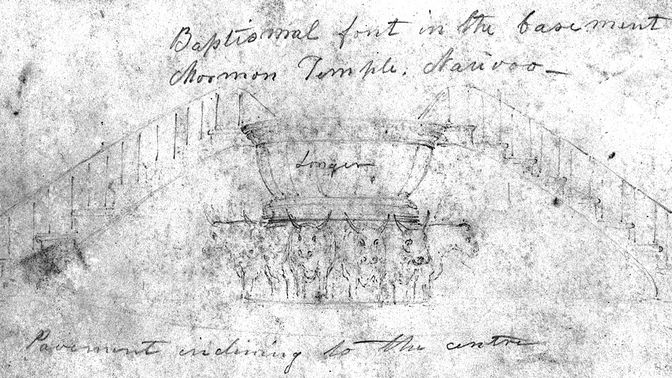 Baptismal font in the basement
Mormon Temple. Nauvoo—
Longer
Pavement inclining to the centre